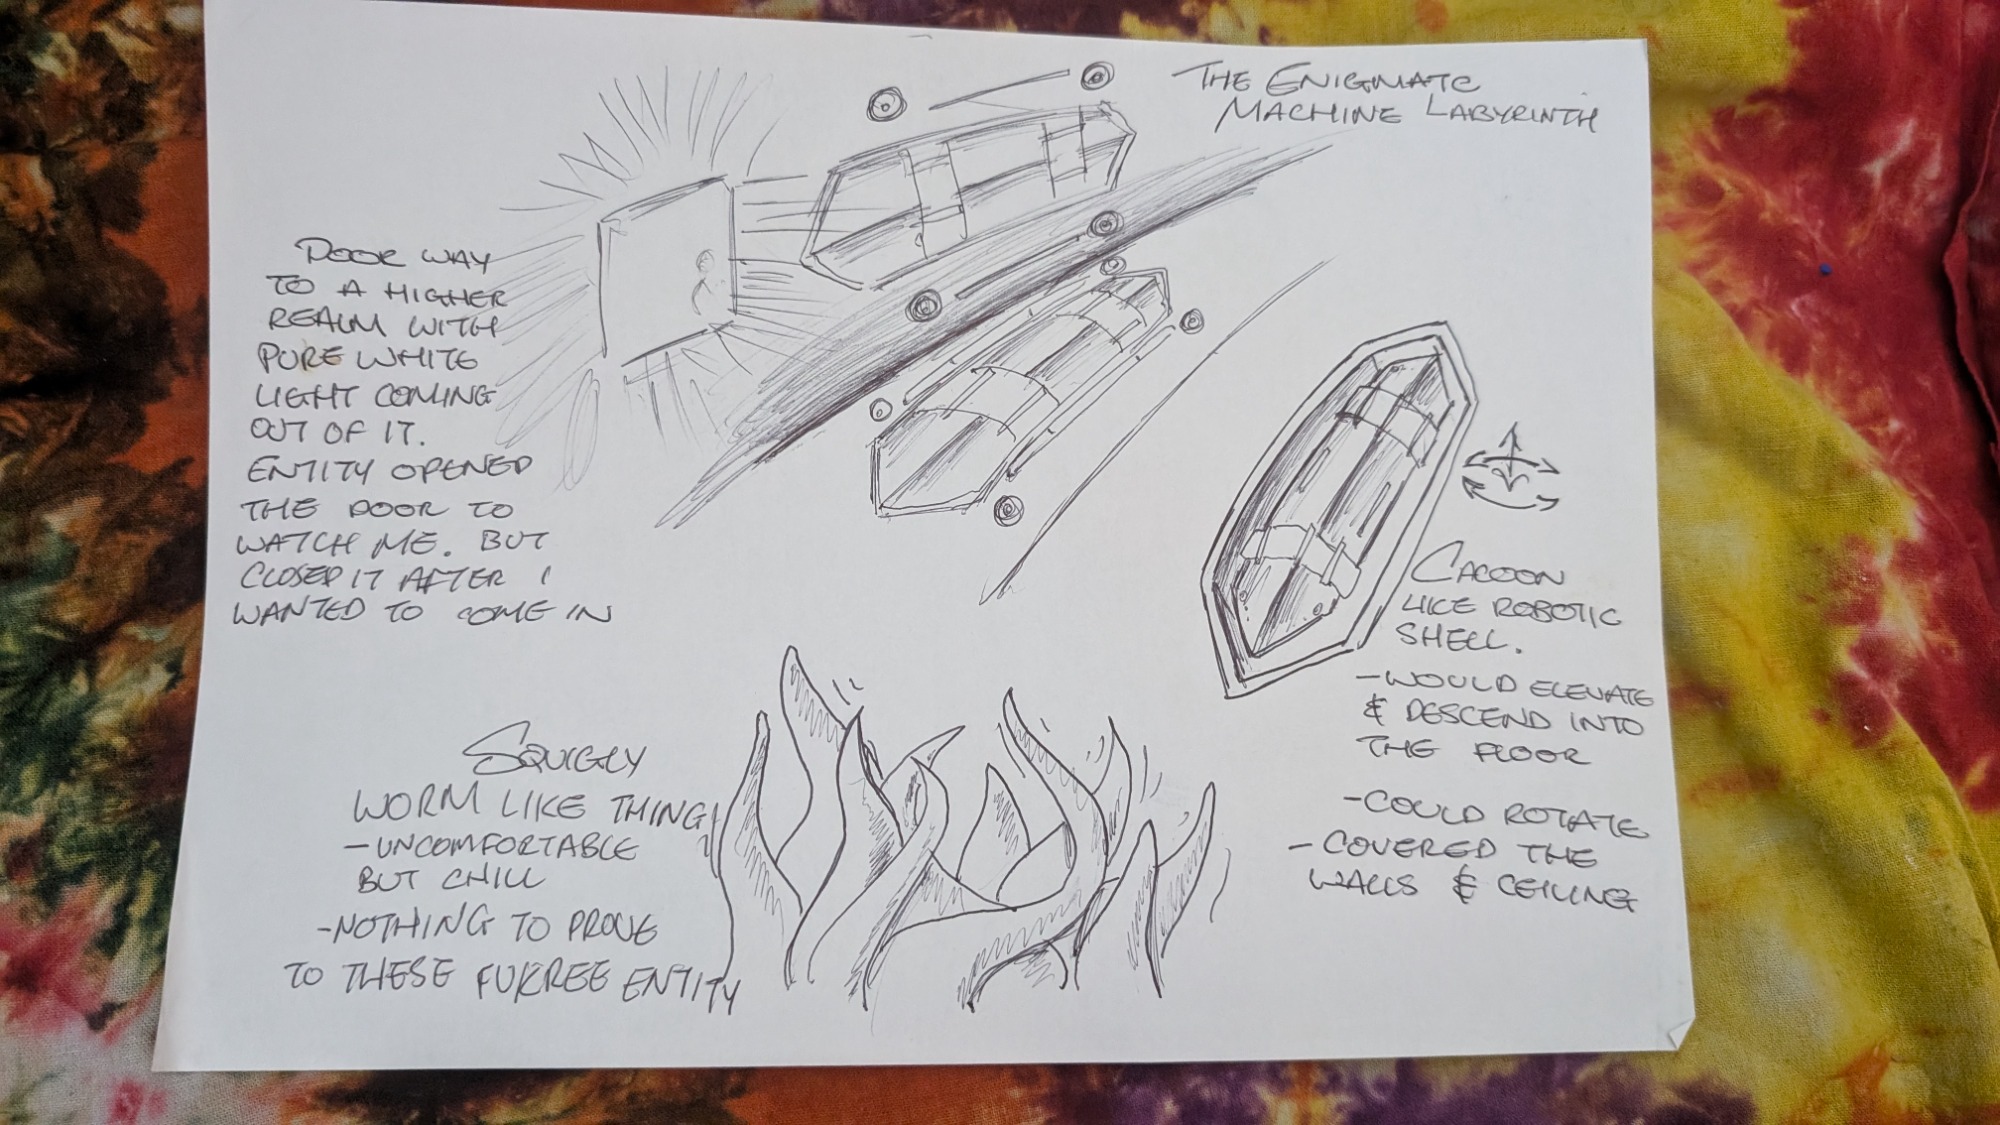 THE ENIGMATC
MACHINE LABYRINTH
DOOR WAY
TO A HIGHER
REALM WITH
PURE WHITE
LIGHT COMING
OUT OF IT.
ENTITY OPENED
THE DOOR TO
WATCH ME. BUT
CLOSED IT AFTER I
WANTED TO COME IN
CACOON
LIKE ROBOTIC
SHELL.
-WOULD ELEVATE
& DESCEND INTO
THE FLOOR
-COULD ROTATE
-COVERED THE
WALLS & CEILING
SQUIGLY
WORM LIKE THING
-UNCOMFORTABLE
BUT CHILL
-NOTHING TO PROVE
TO THESE ENTITY